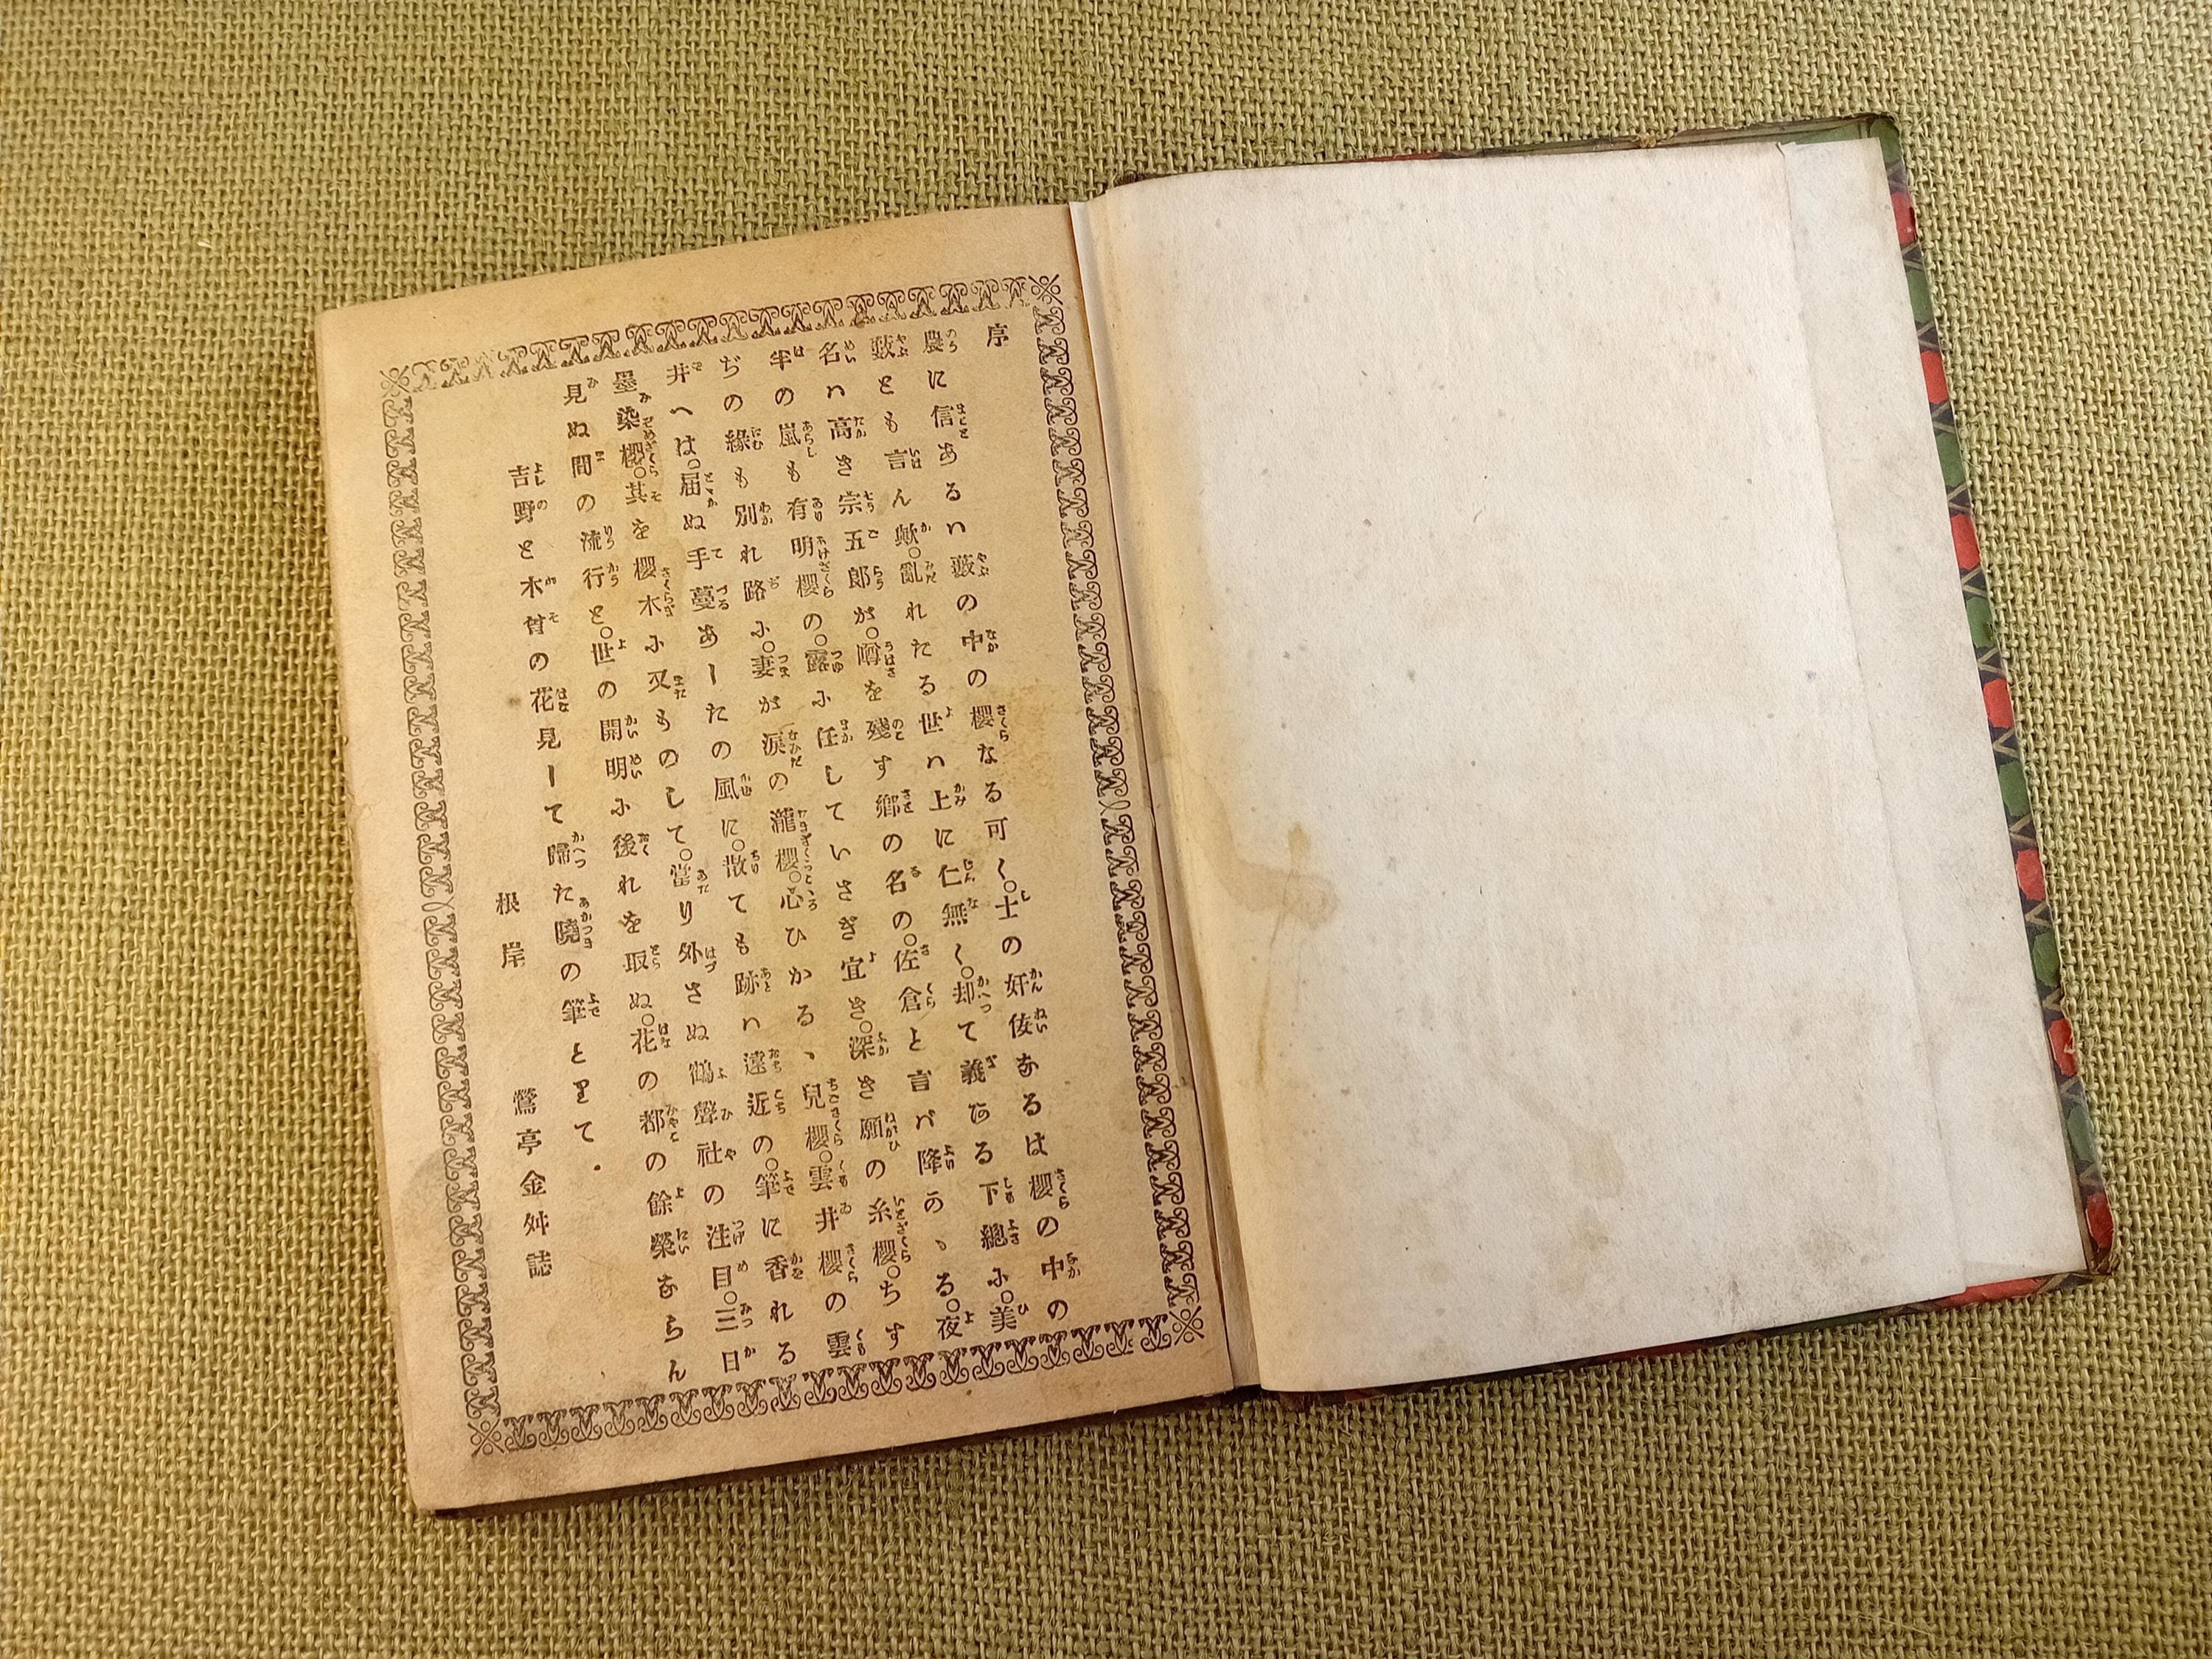 序
農に信あるハ藪の中の櫻なる可く。士の奸侫あるは櫻の中の
藪とも言ん歟。亂れたる世ハ上に仁無く。却て義ある下總に。美
名ハ高き宗五郎が。噂を殘す郷の名の。佐倉と言バ降りの、る。夜
半の嵐も有明櫻の。露に任していさぎ宜き。深き願の糸櫻。ちす
ぢの緣も別れ路に。妻が涙の瀧櫻。心ひかるゝ兒櫻。雲井櫻の雲
井へは。届ぬ手蔓あしたの風に。散ても跡ハ遠近の。筆に香れる
墨染櫻。其を櫻木に又ものして。當り外さぬ鶴聲社の注目。三日
見ぬ間の流行と。世の開明に後れを取ぬ。花の都の餘榮あらん
吉野と木曾の花見して歸た曉の筆とりて.
根岸 鶯亭金舛誌